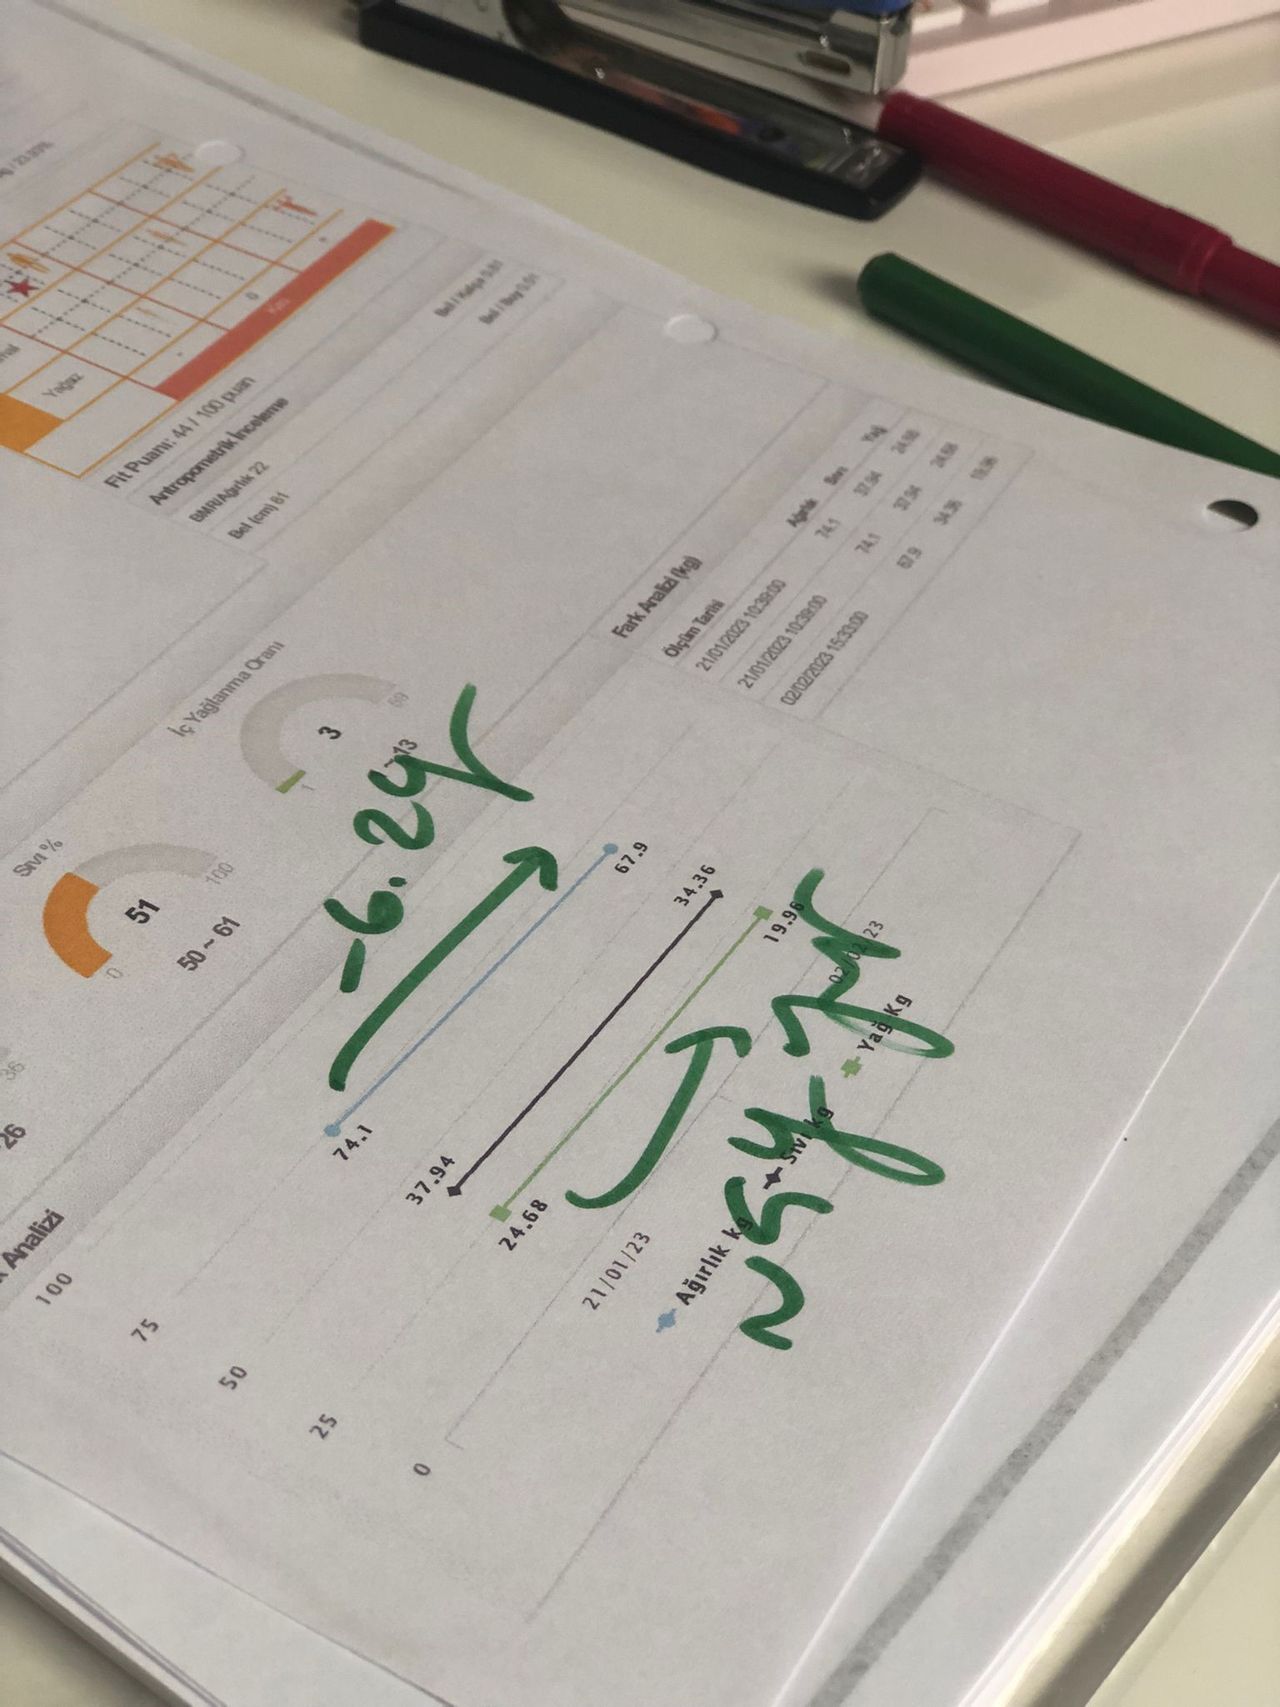 Yağız
Kas
Fit Puanı: 44 / 100 puan
Antropometrik İnceleme
BMR/Ağırlık 22
Bel (cm) 81
Bel / Kalça 0.81
Bel / Boy 0.51
Sıvı %
51
0
100
50 ~ 61
İç Yağlanma Oranı
3
1
69
~13
36
26
Fark Analizi (kg)
Ölçüm Tarihi Ağırlık Sıvı Yağ
21/01/2023 10:39:00 74.1 37.94 24.68
21/01/2023 10:39:00 74.1 37.94 24.68
02/02/2023 15:33:00 67.9 34.36 19.96
Analizi
100
75
50
25
0
74.1
67.9
37.94
34.36
24.68
19.96
21/01/23
02/02/23
Ağırlık kg
Sıvı kg
Yağ Kg
-6.2